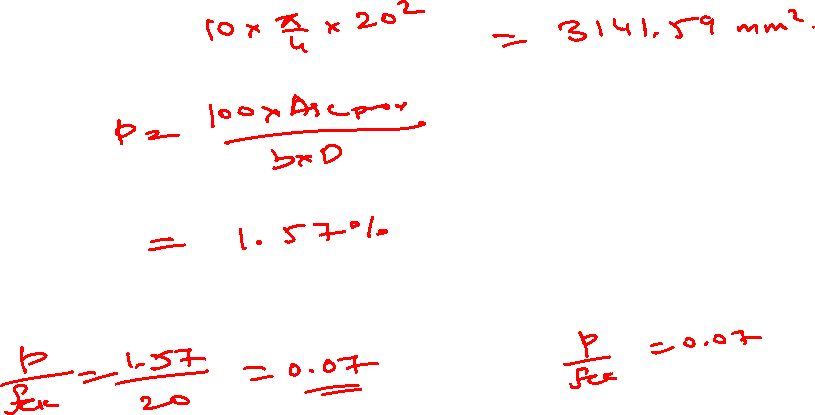 10 × π/4 × 20² = 3141.59 mm².
p = 100 × Asc prov / b×D
= 1.57%
p/fck = 1.57/20 = 0.07
p/fck = 0.07